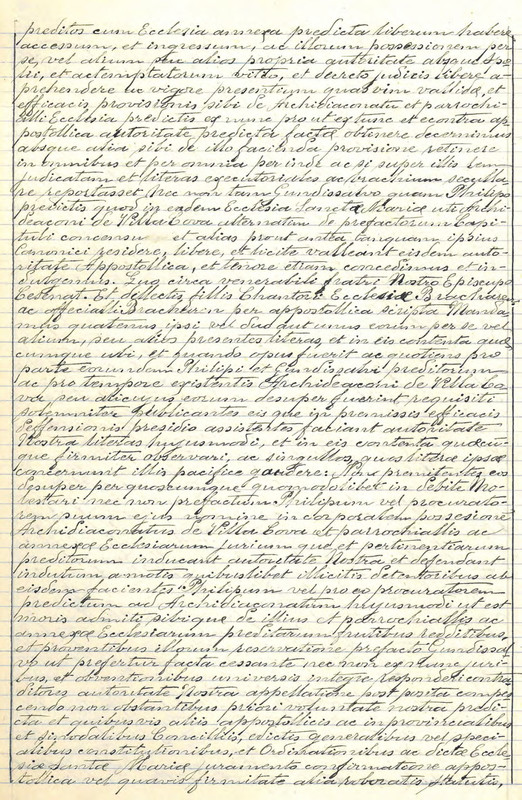 preditos cum Ecclesia annexa predicta liberum habere
accessum, et ingressum, ac illorum possessionem per
se, vel alium seu alios propria autoritate absque Spo
lii, et actemptatorum vitio, et decreto judicis libere a-
prehendere ac vigore presentium quas vim validæ, et
efficacis provisionis sibi de Archidiaconatu et parrochi-
alli Ecclesia predictis ex nunc prout ex tunc et econtra ap
postollica autoritate predicta facta obtinere decernimus
absque alia sibi de illo facienda provisione retinere
in omnibus et per omnia per inde ac si super illis rem
judicatam et literas executoriales ac brachium secula
re reportasset, Nec non tam Gundissalvo quam Philipo
predictis quod in eadem Ecclesia Sanctæ Mariæ uti Archi-
deaconi de Villa Cova alternatim de prefactorum Capi-
tuli concensu et alias prout antea tanquam ipsius
Canonici residere, libere, et licite valleant eisdem auto-
ritate Appostollica, et tenore etiam concedimus et in-
dulgemus. Quo circa venerabili fratri Nostro Episcopo
Cesenat. Et dellectis filiis Chantori Ecclesiæ Brachiaren
ac officiali Bracharen per appostollica scripta Manda
mus quatenus ipsi vel duo aut unus eorum per se vel
alium, seu alios presentes literas, et in eis contenta quæ
cumque ubi, et quando opus fuerit ac quotiens pro
parte eorundem Philipi et Gundissalvi preditorum
ac pro tempore existentis Archideaconi de Villa Co
va seu alicujus eorum desuper fuerint requisiti
solemniter Publicantes eis que in premissis efficacis
deffensionis presidio assistentes faciant autoritate
Nostra literas hujusmodi, et in eis contenta quæcu-
que firmiter observari, ac singullos, quos literæ ipsæ
concernunt illis pacifice gaudere: Non premitentes eos
desuper per quoscumque quomodolibet in debite mo-
lestari nec non prefactum Philipum vel procurato-
rem suum ejus nomine in corporalem possesione
Archidiaconatus de Villa Cova et parrochiallis ac
annexæ Ecclesiarum jurium que et pertinentiarum
preditorum inducant autoritate Nostra et defendant
indutum amotis quibuslibet illicitis detentoribus ab
eisdem facientes Philipum vel pro eo procuratorem
predictum ad Archidiaconatum hujusmodi ut est
moris admitti sibi que de illius et parrochiallis ac
annexæ Ecclesiarum preditorum fructibus redditibus,
et proventibus illorum reservatione prefacto Gundissal-
vo ut prefertur facta cessante nec non ex nunc juri-
bus, et obventionibus universis integre responderi contra-
ditores autoritate Nostra appellatione post posita compes
cendo non obstantibus priori voluntate nostra predi-
cta et quibusvis aliis appostollicis ac in provincialibus
et sinodalibus Conciliis, edictis generalibus vel speci-
alibus constitutionibus, et Ordinationibus ac dictæ Eccle-
siæ Sanctæ Mariæ juramento confirmatione appos-
tollica vel quavis firmitate alia roboratis statutis,